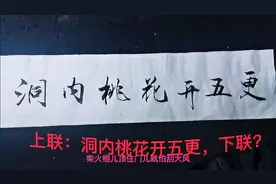 洞内桃花开五更
上联：洞内桃花开五更，下联？
柴火棍儿顶住门儿就怕刮大风